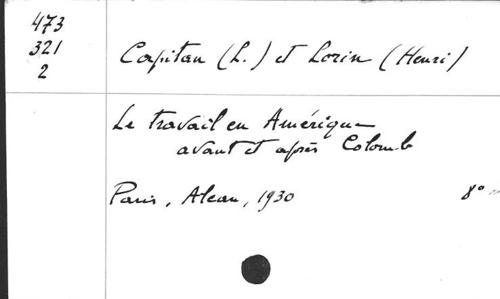 473
321
2
Capitan (L.) et Lorin (Henri)
Le travail en Amérique
avant et après Colomb
Paris, Alcan, 1930 8°